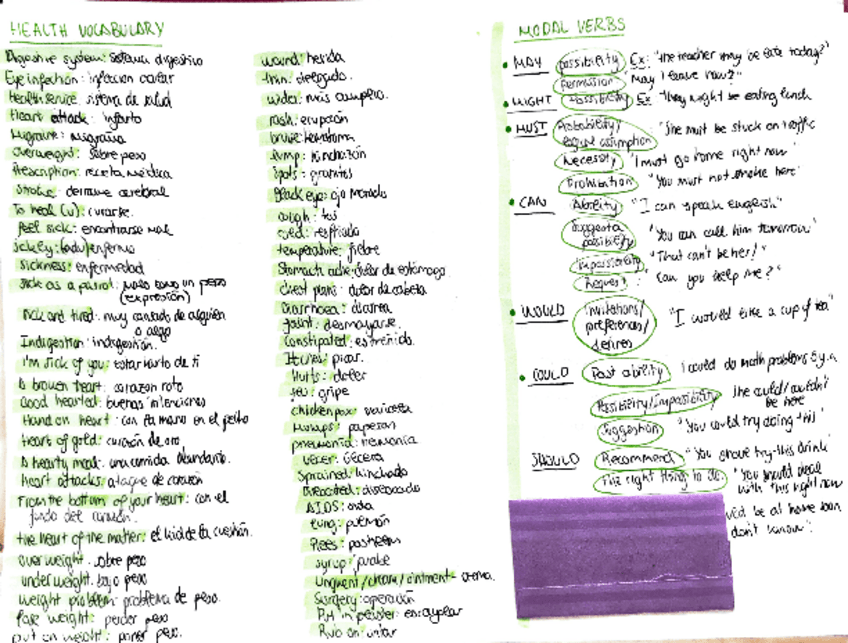 HEALTH VOCABULARY
Digestive system: sistema digestivo
Eye infection: infeccion ocular
Health service: sistema de salud
Heart attack: infarto
Migraine: migraña
Overweight: sobre peso
Prescription: receta médica
Stroke: derrame cerebral
To heal (v): curarse
Feel sick: encontrarse mal
Sickness: enfermedad
Sick as a parrot:
(expresión)
Sick and tired: muy cansado de alguien
o algo
Indigestion: indigestión.
I'm sick of you: estar harto de ti
A broken heart: corazon roto
Good hearted: buenas intenciones
Hand on heart: con la mano en el pecho
Heart of gold: corazón de oro
A hearty meal: una comida abundante.
heart attacks: ataque de corazón
From the bottom of your heart: con el
fondo del corazón.
the heart of the matter: el kid de la cuestión.
over weight: sobre peso
under weight: bajo peso
weight problem: problema de peso.
lose weight: perder peso
put on weight: poner peso.
wound: herida
thin: delgado.
rash: erupción
bruise: hematoma
bump: hinchazón
spots: granitos
Black eye: ojo morado
cough: tos
cold: resfriado
temperature: fiebre
Stomach ache: dolor de estómago.
chest pains: dolor de cabeza
Diarrhoea: diarrea
faint: desmayarse.
Constipated: estreñido.
Itches: picar.
Hurts: doler
flu: gripe
chickenpox: varicela
Mumps: paperas
pneumonia: neumonía
ulcer: úlcera
Sprained: hinchado
Dislocated: dislocado
AIDS: sida
lung: pulmón
syrup: jarabe
Unguent/cream/ointment- crema.
Surgery: operación
MODAL VERBS
• MAY possibility Ex: "the teacher may be late today?"
Permission "May I leave now?"
• MIGHT Possibility Ex "they might be eating lunch
• MUST Probability/
logical assumption "She must be stuck on traffic
Necessity "I must go home right now"
Prohibition "You must not smoke here"
• CAN Ability "I can speak english"
Suggest a
possibility "You can call him tomorrow"
Impossibility "That can't be her!"
Request "Can you help me?"
• WOULD Invitations/
preferences/
desires "I would like a cup of tea"
• COULD Past ability I could do math problems 5 y.o
Possibility/Impossibility She could/couldn't
be here
Suggestion "You could try doing this"
SHOULD Recommend "You should try this drink"
The right thing to do. "You should deal
with this right now
be at home soon
don't know".